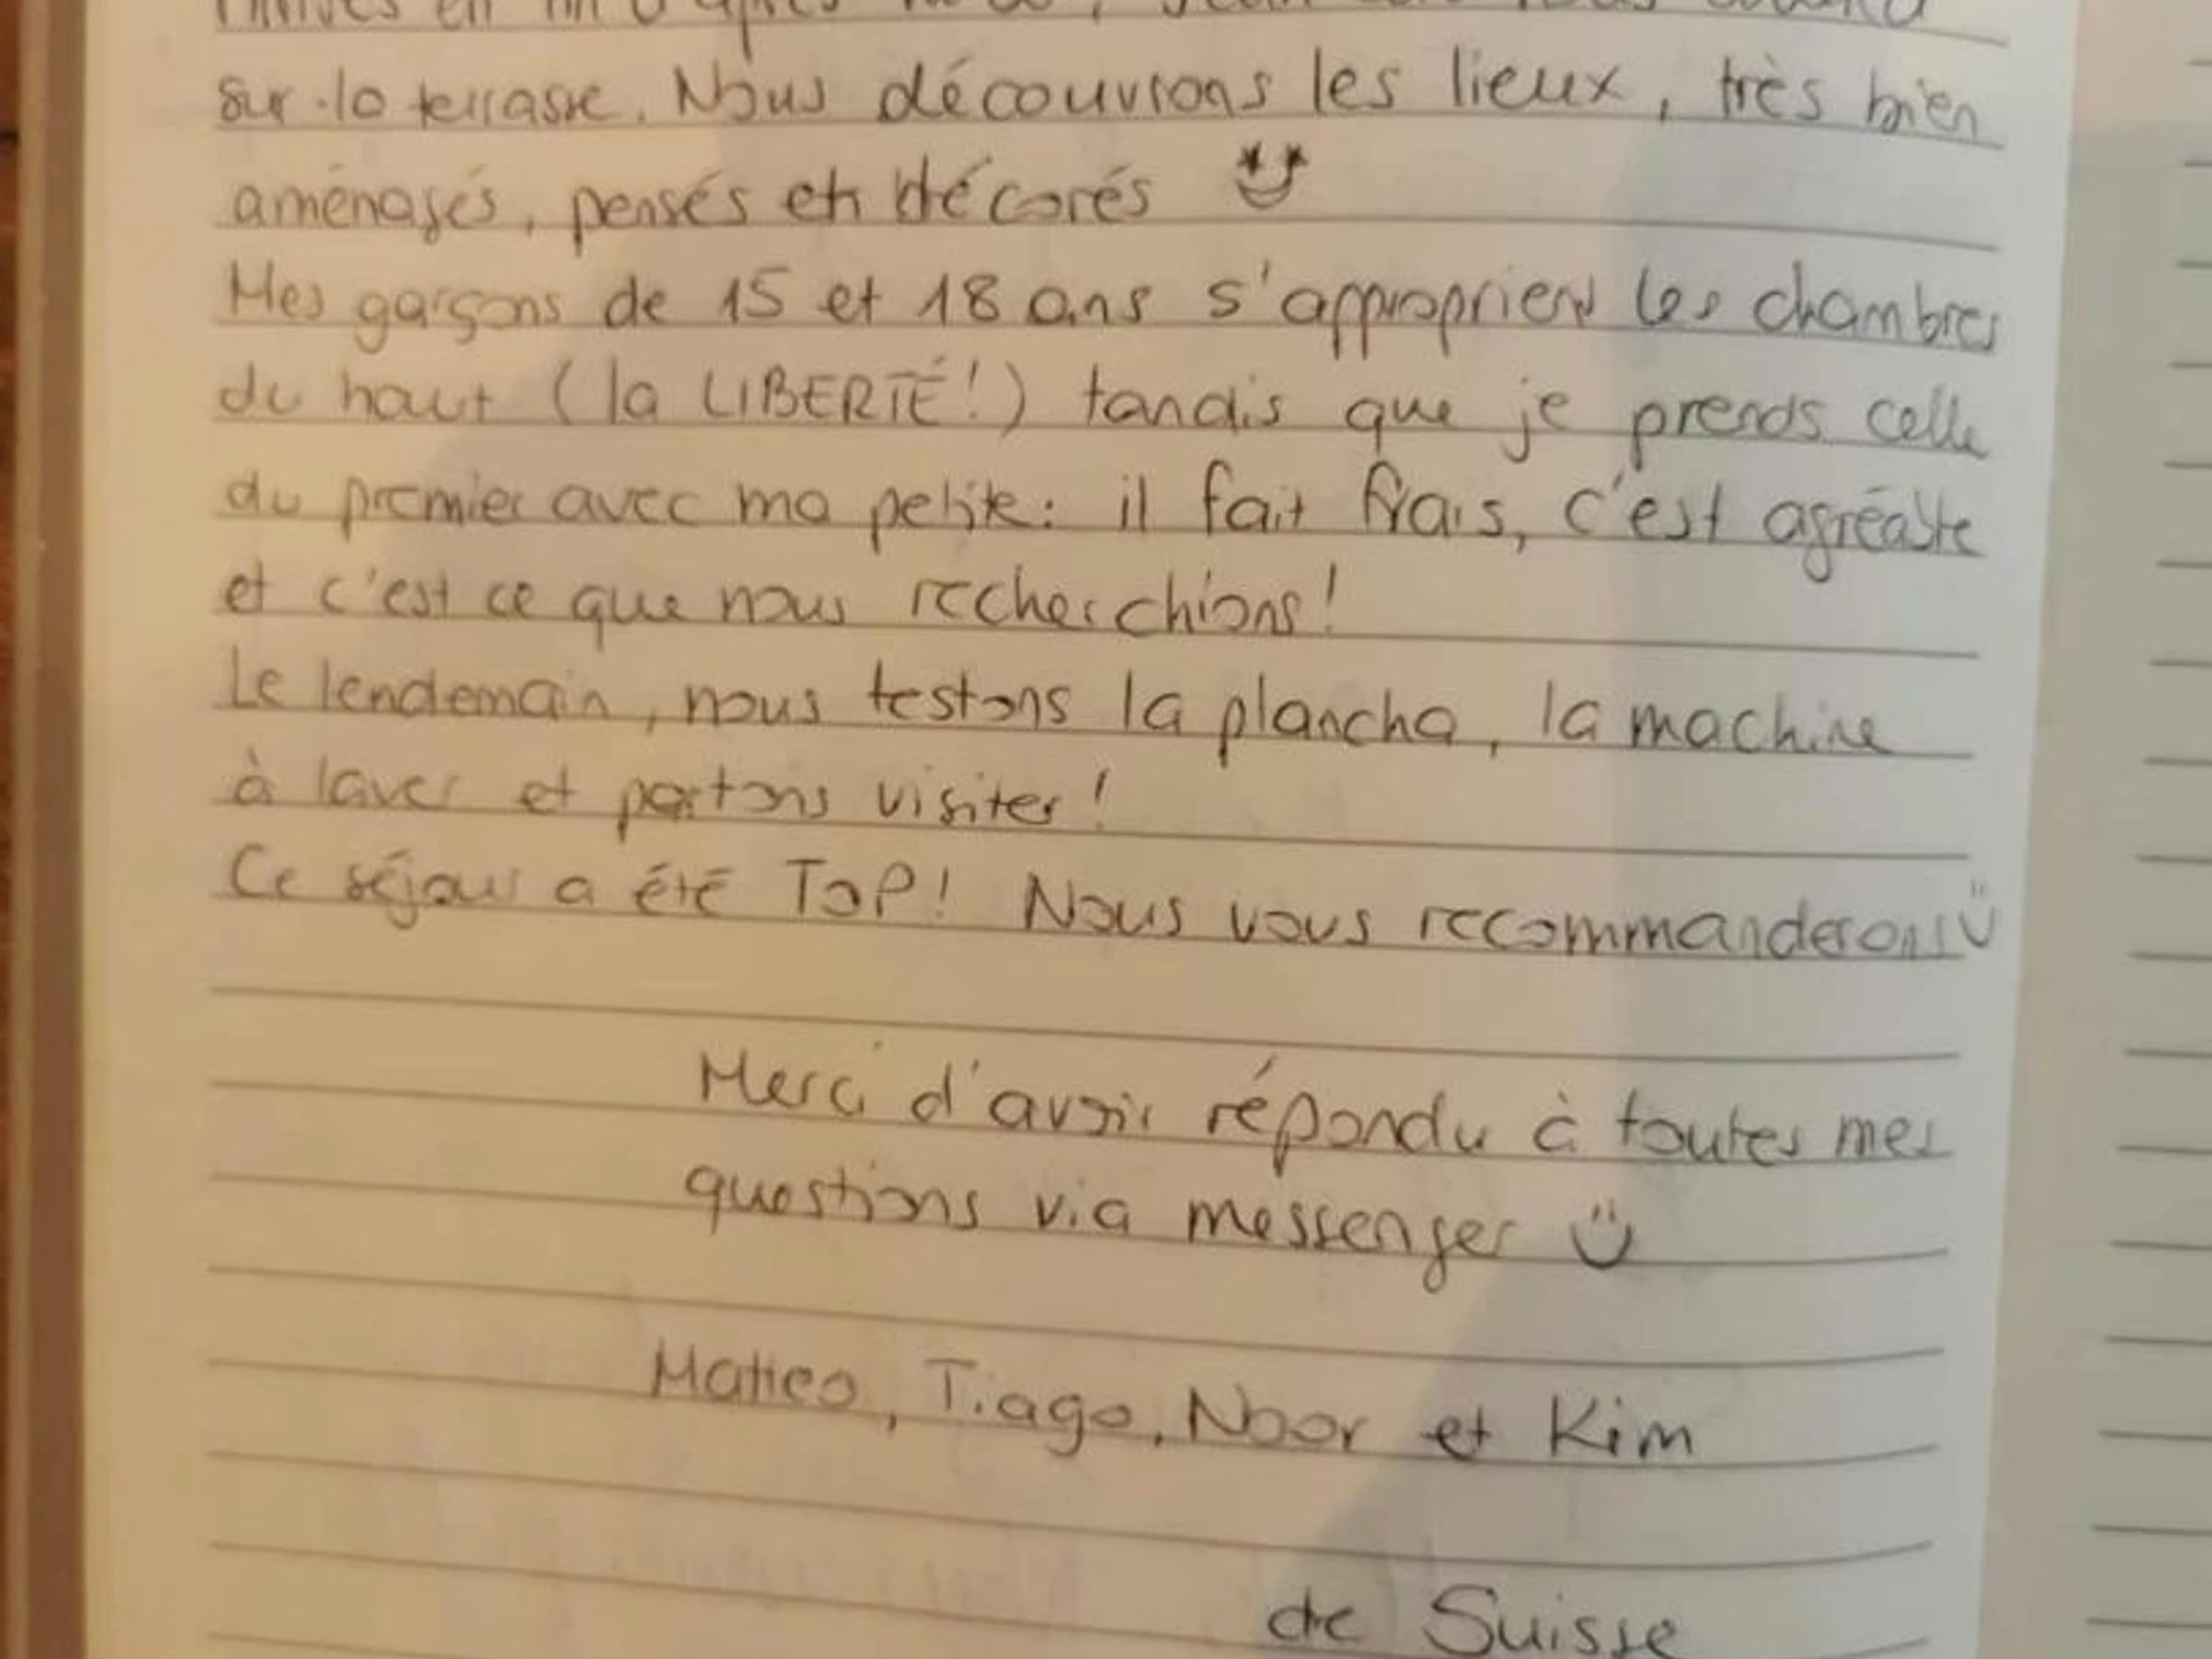 sur la terrasse. Nous découvrons les lieux, très bien
aménagés, pensés et décorés
Mes garçons de 15 et 18 ans s'approprient les chambres
du haut (la LIBERTÉ!) tandis que je prends celle
du premier avec ma petite: il fait frais, c'est agréable
et c'est ce que nous recherchions!
Le lendemain, nous testons la plancha, la machine
à laver et partons visiter!
Ce séjour a été TOP! Nous vous recommanderons
Merci d'avoir répondu à toutes mes
questions via messenger
Matteo, Tiago, Noor et Kim
de Suisse